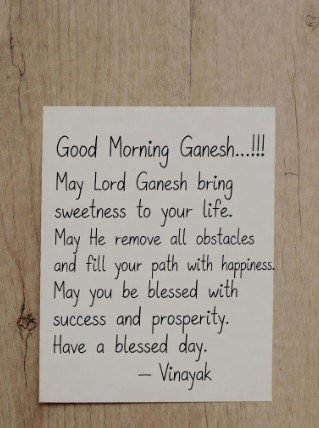 Good Morning Ganesh...!!!
May Lord Ganesh bring
sweetness to your life.
May He remove all obstacles
and fill your path with happiness.
May you be blessed with
success and prosperity.
Have a blessed day.
— Vinayak